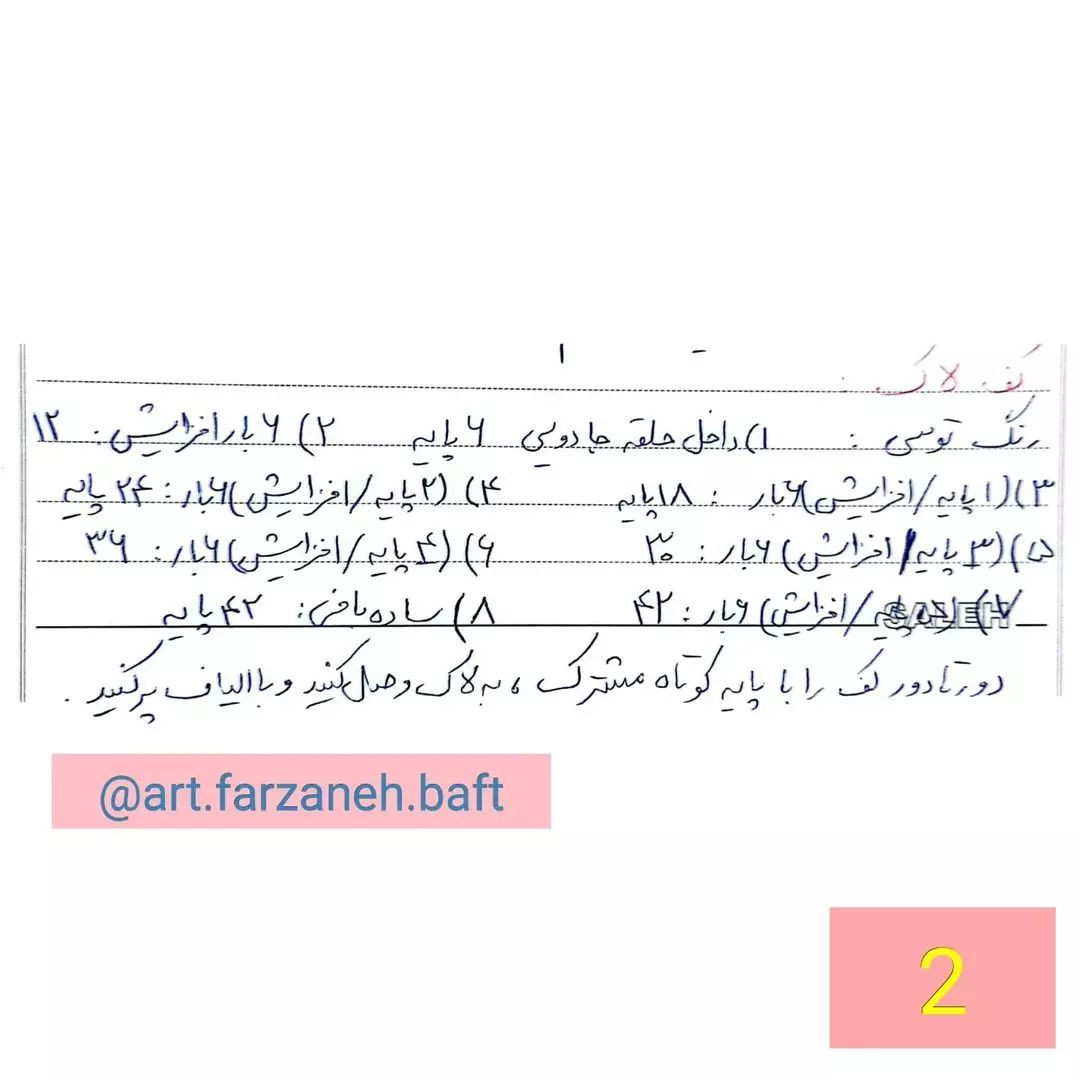 کف لاک :
رنگ توسی : ۱) داخل حلقه جادویی ۶ پایه ۲) ۶ بار افزایش : ۱۲
۳) (۱ پایه/افزایش) ۶بار : ۱۸ پایه ۴) (۲ پایه/افزایش) ۶بار : ۲۴ پایه
۵) (۳ پایه/افزایش) ۶بار : ۳۰ ۶) (۴ پایه/افزایش) ۶بار : ۳۶
۷) (۵ پایه/افزایش) ۶بار : ۴۲ ۸) ساده بافی : ۴۲ پایه
SALEH
دور تا دور کف را با پایه کوتاه مشترک ، به لاک وصل کنید و با الیاف پر کنید .
@art.farzaneh.baft
2